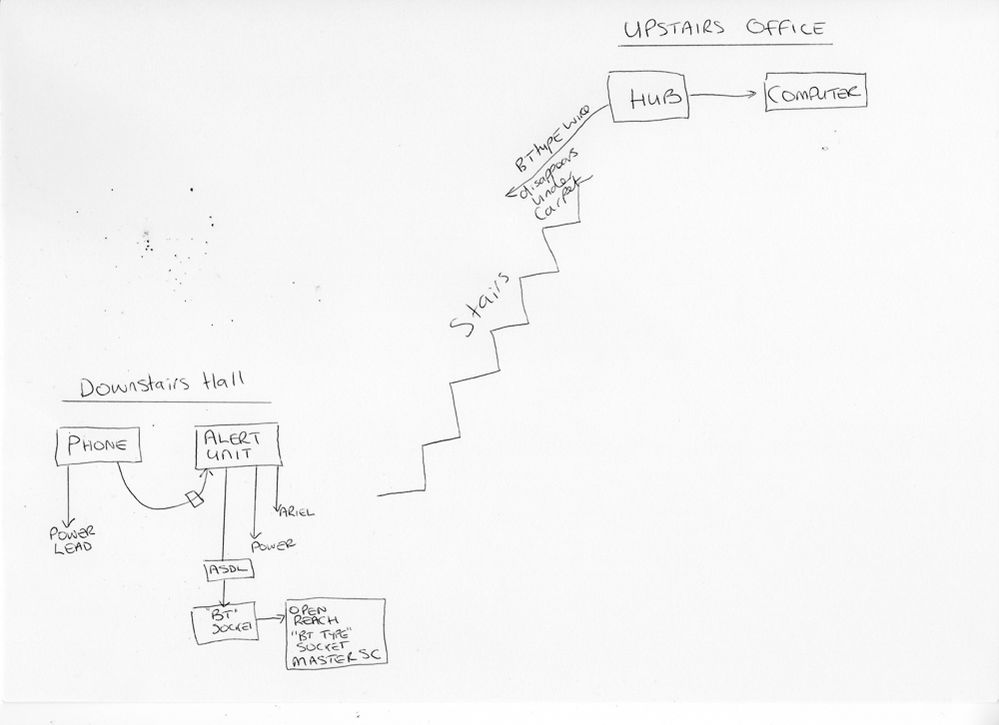 UPSTAIRS OFFICE
HUB
COMPUTER
BT type wire
disappears
under
Carpet
Stairs
Downstairs Hall
PHONE
ALERT
UNIT
POWER
LEAD
ARIEL
POWER
ASDL
"BT"
SOCKET
OPEN
REACH
"BT TYPE"
SOCKET
MASTER SC